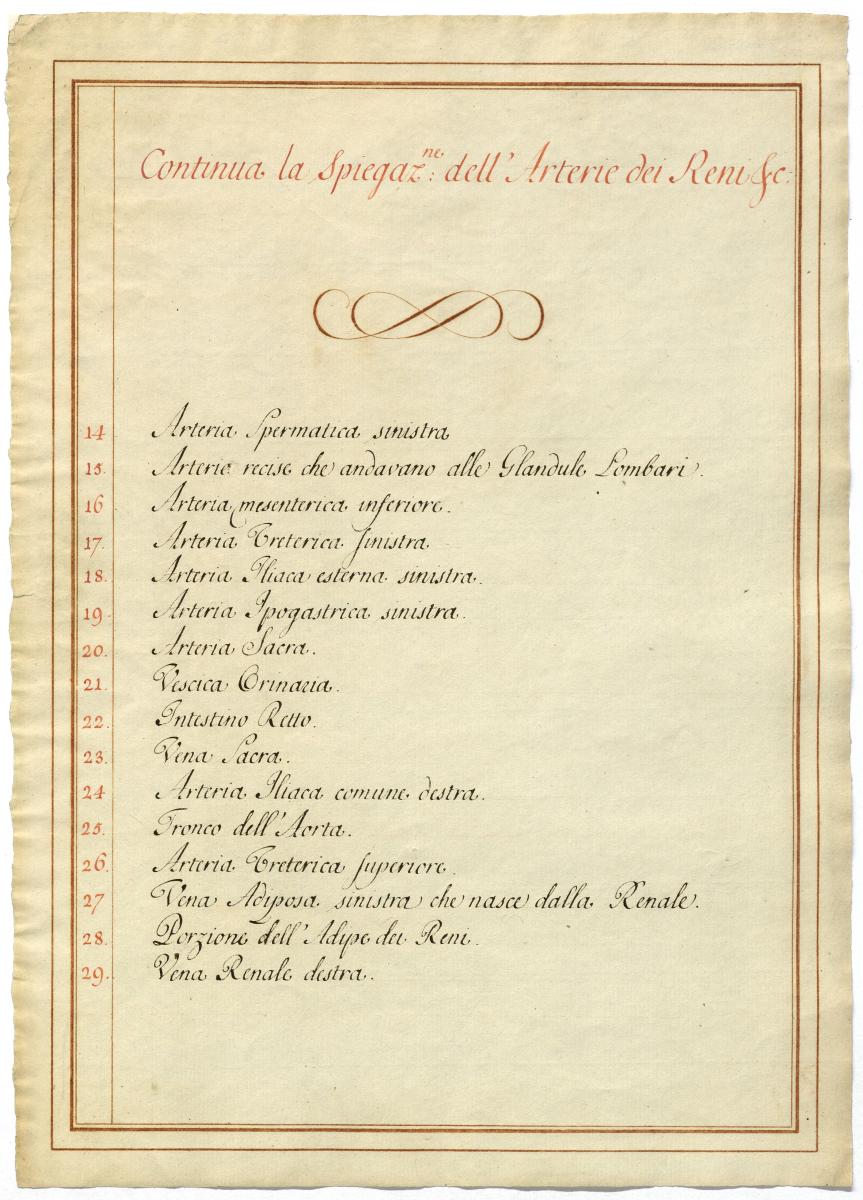 Continua la Spiegaz.ne: dell'Arterie dei Reni &c:
14 Arteria Spermatica sinistra
15. Arterie recise che andavano alle Glandule Lombari.
16 Arteria mesenterica inferiore.
17. Arteria Vreterica sinistra
18. Arteria Iliaca esterna sinistra.
19 Arteria Ipogastrica sinistra.
20. Arteria Sacra.
21. Vescica Orinaria.
22. Intestino Retto.
23. Vena Sacra.
24 Arteria Iliaca comune destra.
25. Tronco dell'Aorta.
26. Arteria Vreterica superiore.
27 Vena Adiposa sinistra che nasce dalla Renale.
28. Porzione dell'Adipe dei Reni.
29. Vena Renale destra.